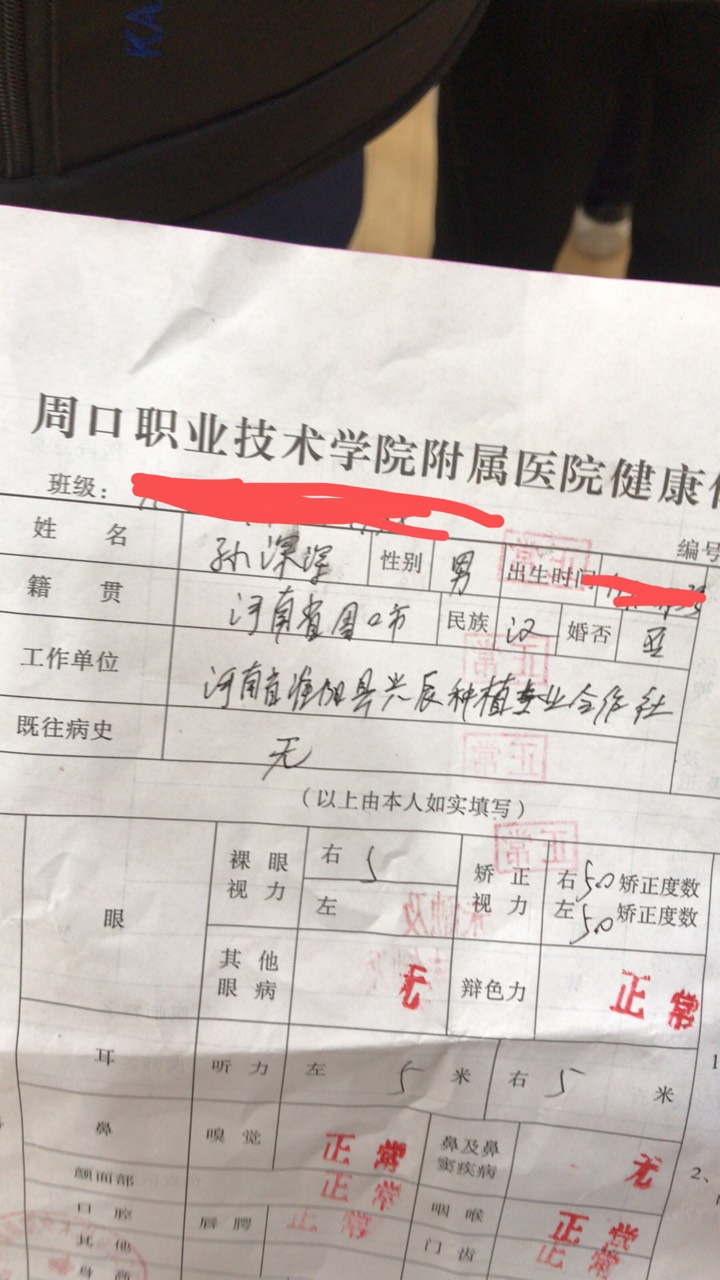 KA
周口职业技术学院附属医院健康
班级：
编号
姓 名 孙深深 性别 男 出生时间
籍 贯 河南省周口市 民族 汉 婚否 否
工作单位 河南省淮阳县兴辰种植专业合作社
既往病史 无
（以上由本人如实填写）
眼 裸眼视力 右 5 矫正视力 右 50 矫正度数
左 左 50 矫正度数
其他眼病 无 辩色力 正常
耳 听力 左 5 米 右 5 米
鼻 嗅觉 正常 鼻及鼻窦疾病 无
颜面部 正常
口腔 唇腭 正常 咽喉 正常
其他 门齿 正常
1
2、